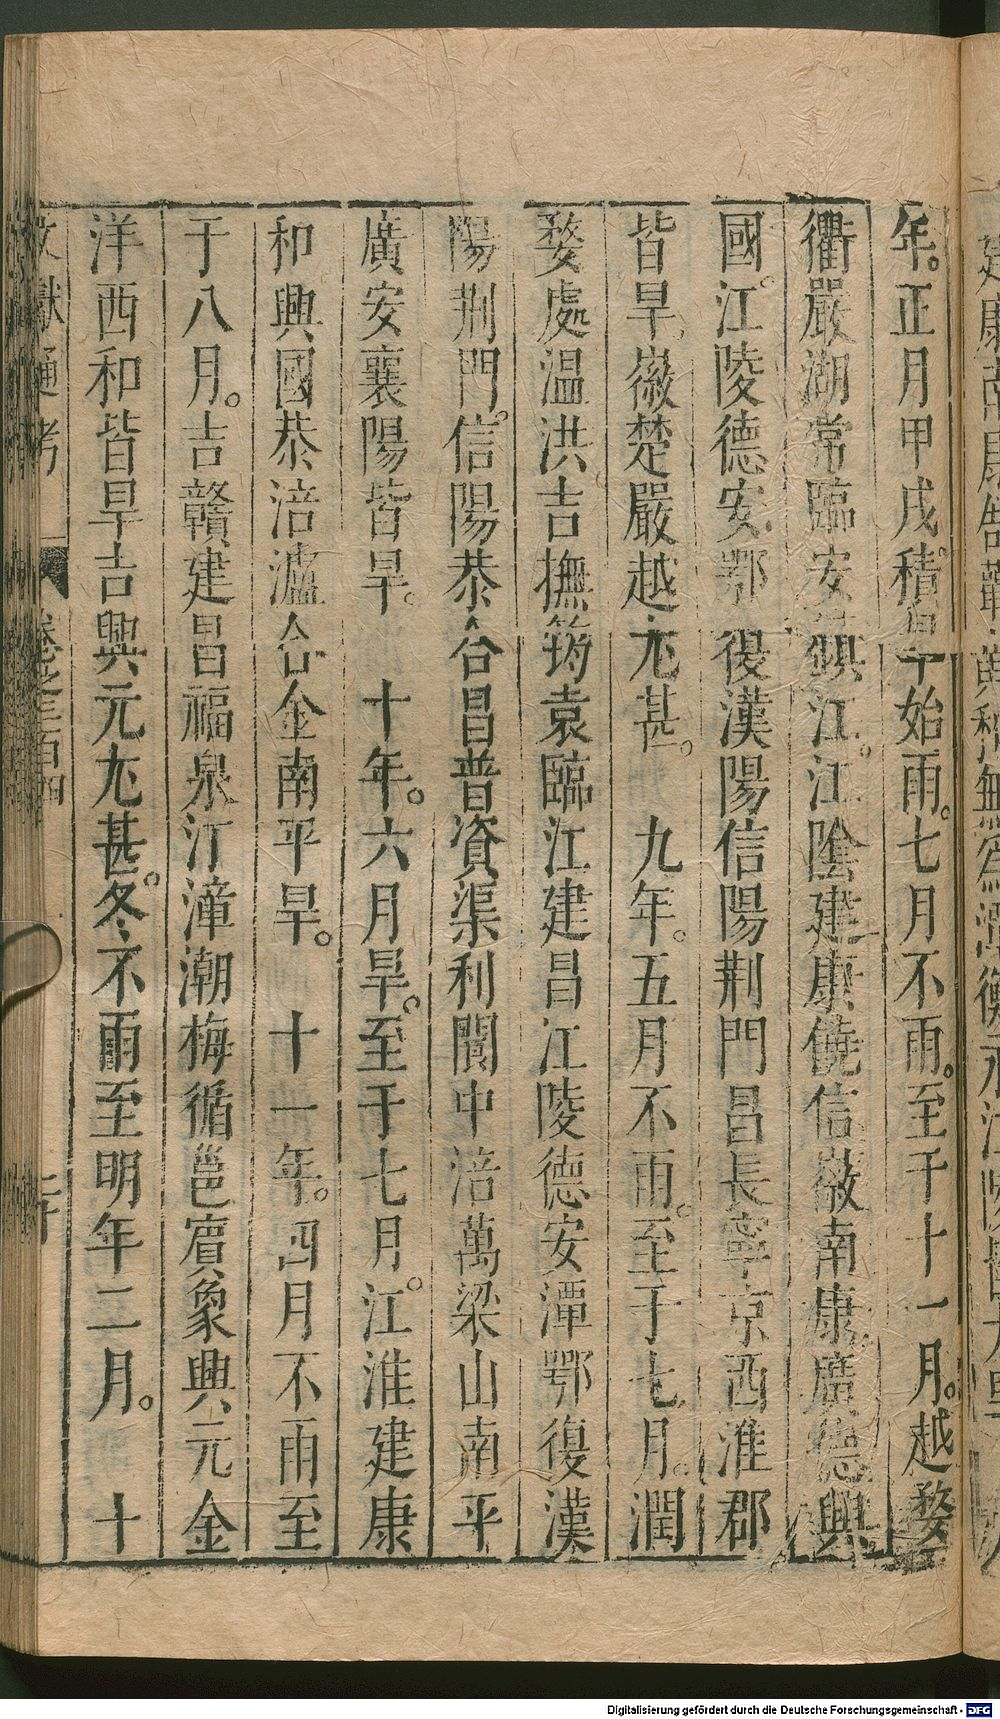 年。正月甲戌積旱始雨。七月不雨。至于十一月。越婺
衢嚴湖常臨安鎮江。江陰建康饒信徽南康廣德興
國。江陵德安鄂復漢陽信陽荆門昌長寧京西淮郡
皆旱。徽楚嚴越尤甚。 九年。五月不雨。至于七月。潤
婺處温洪吉撫筠袁臨江建昌江陵德安潭鄂復漢
陽荆門。信陽恭合昌普資渠利閬中涪萬梁山南平
廣安襄陽皆旱。 十年。六月旱。至于七月。江淮建康
和興國恭涪瀘合金南平旱。 十一年。四月不雨至
于八月。吉贛建昌福泉汀漳潮梅循邕賓象興元金
洋西和皆旱吉興元尤甚。冬不雨至明年二月。 十
文獻通考 卷三百四
Digitalisierung gefördert durch die Deutsche Forschungsgemeinschaft - DFG